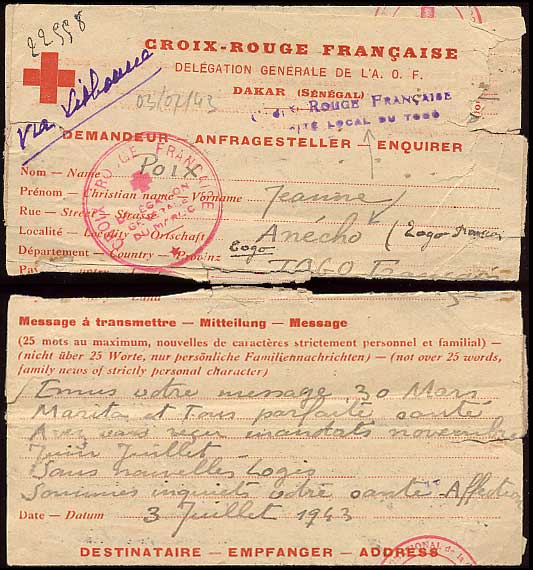 22998
CROIX-ROUGE FRANÇAISE
DÉLÉGATION GÉNÉRALE DE L'A. O. F.
DAKAR (SÉNÉGAL)
via Lisbonne
03/07/43
ROUGE FRANÇAISE
COMITÉ LOCAL DU TOGO
DEMANDEUR — ANFRAGESTELLER — ENQUIRER
Nom — Name Poix
Prénom — Christian name — Vorname Jeanne
Rue — Street — Strasse
Localité — Locality — Ortschaft Anécho (Togo français
Département — County — Provinz Togo
TOGO Français
CROIX ROUGE FRANÇAISE
DÉLÉGATION
GÉNÉRALE
DU MAROC
Land
Message à transmettre — Mitteilung — Message
(25 mots au maximum, nouvelles de caractères strictement personnel et familial) —
(nicht über 25 Worte, nur persönliche Familiennachrichten) — (not over 25 words,
family news of strictly personal character)
Emus votre message 30 Mars
Marita et Tous parfaite santé
Avez vous reçu mandats novembre
Juin Juillet —
Sans nouvelles Logis
Sommes inquiets votre santé Affection
Date — Datum 3 Juillet 1943
DESTINATAIRE — EMPFANGER — ADDRESS